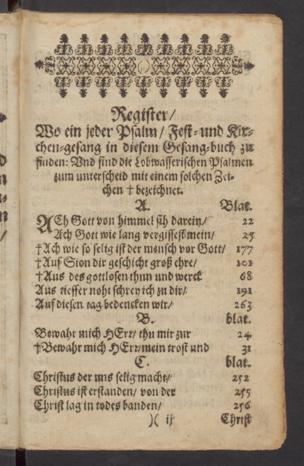 Register/
Wo ein jeder Psalm/ Fest- und Kir-
chen-gesang in diesem Gesang-buch zu
finden: Vnd sind die Lobwasserischen Psalmen
zum unterscheid mit einem solchen Zei-
chen † bezeichnet.
A. Blat.
ACh Gott von himmel sih darein/ 22
Ach Gott wie lang vergissest mein/ 25
†Ach wie so selig ist der mensch vor Gott/ 177
†Auf Sion dir geschicht groß ehre/ 101
†Aus des gottlosen thun und werck 68
Aus tieffer noht schrey ich zu dir/ 191
Auf diesen tag bedencken wir/ 263
B. blat.
Bewahr mich HErr/ thu mir zur 24
†Bewahr mich HErr/mein trost und 31
C. blat.
Christus der uns selig macht/ 252
Christus ist erstanden/ von der 255
Christ lag in todes banden/ 256
)( ij Christ